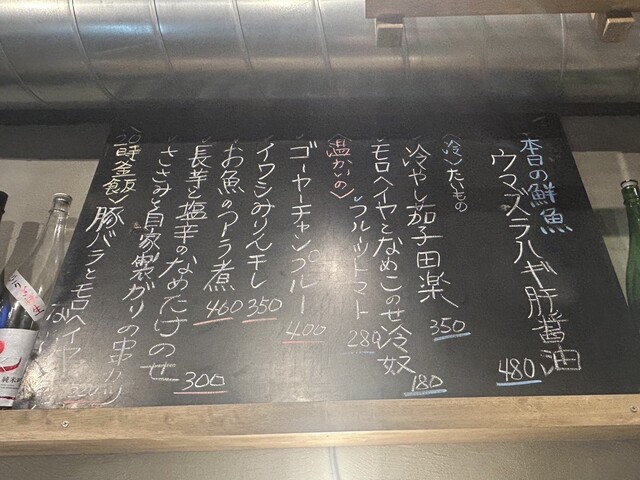 本日の鮮魚
ウマズラハギ肝醤油
480
〈冷〉たいもの
冷やし茄子田楽
350
モロヘイヤとなめこのせ冷奴
180
フルーツトマト
280
〈温かいの〉
ゴーヤーチャンプルー
400
イワシみりん干し
350
お魚のアラ煮
460
長芋と塩辛のなめたけのせ
300
ささみと自家製がりの串
豚バラとモロヘイヤ
純米